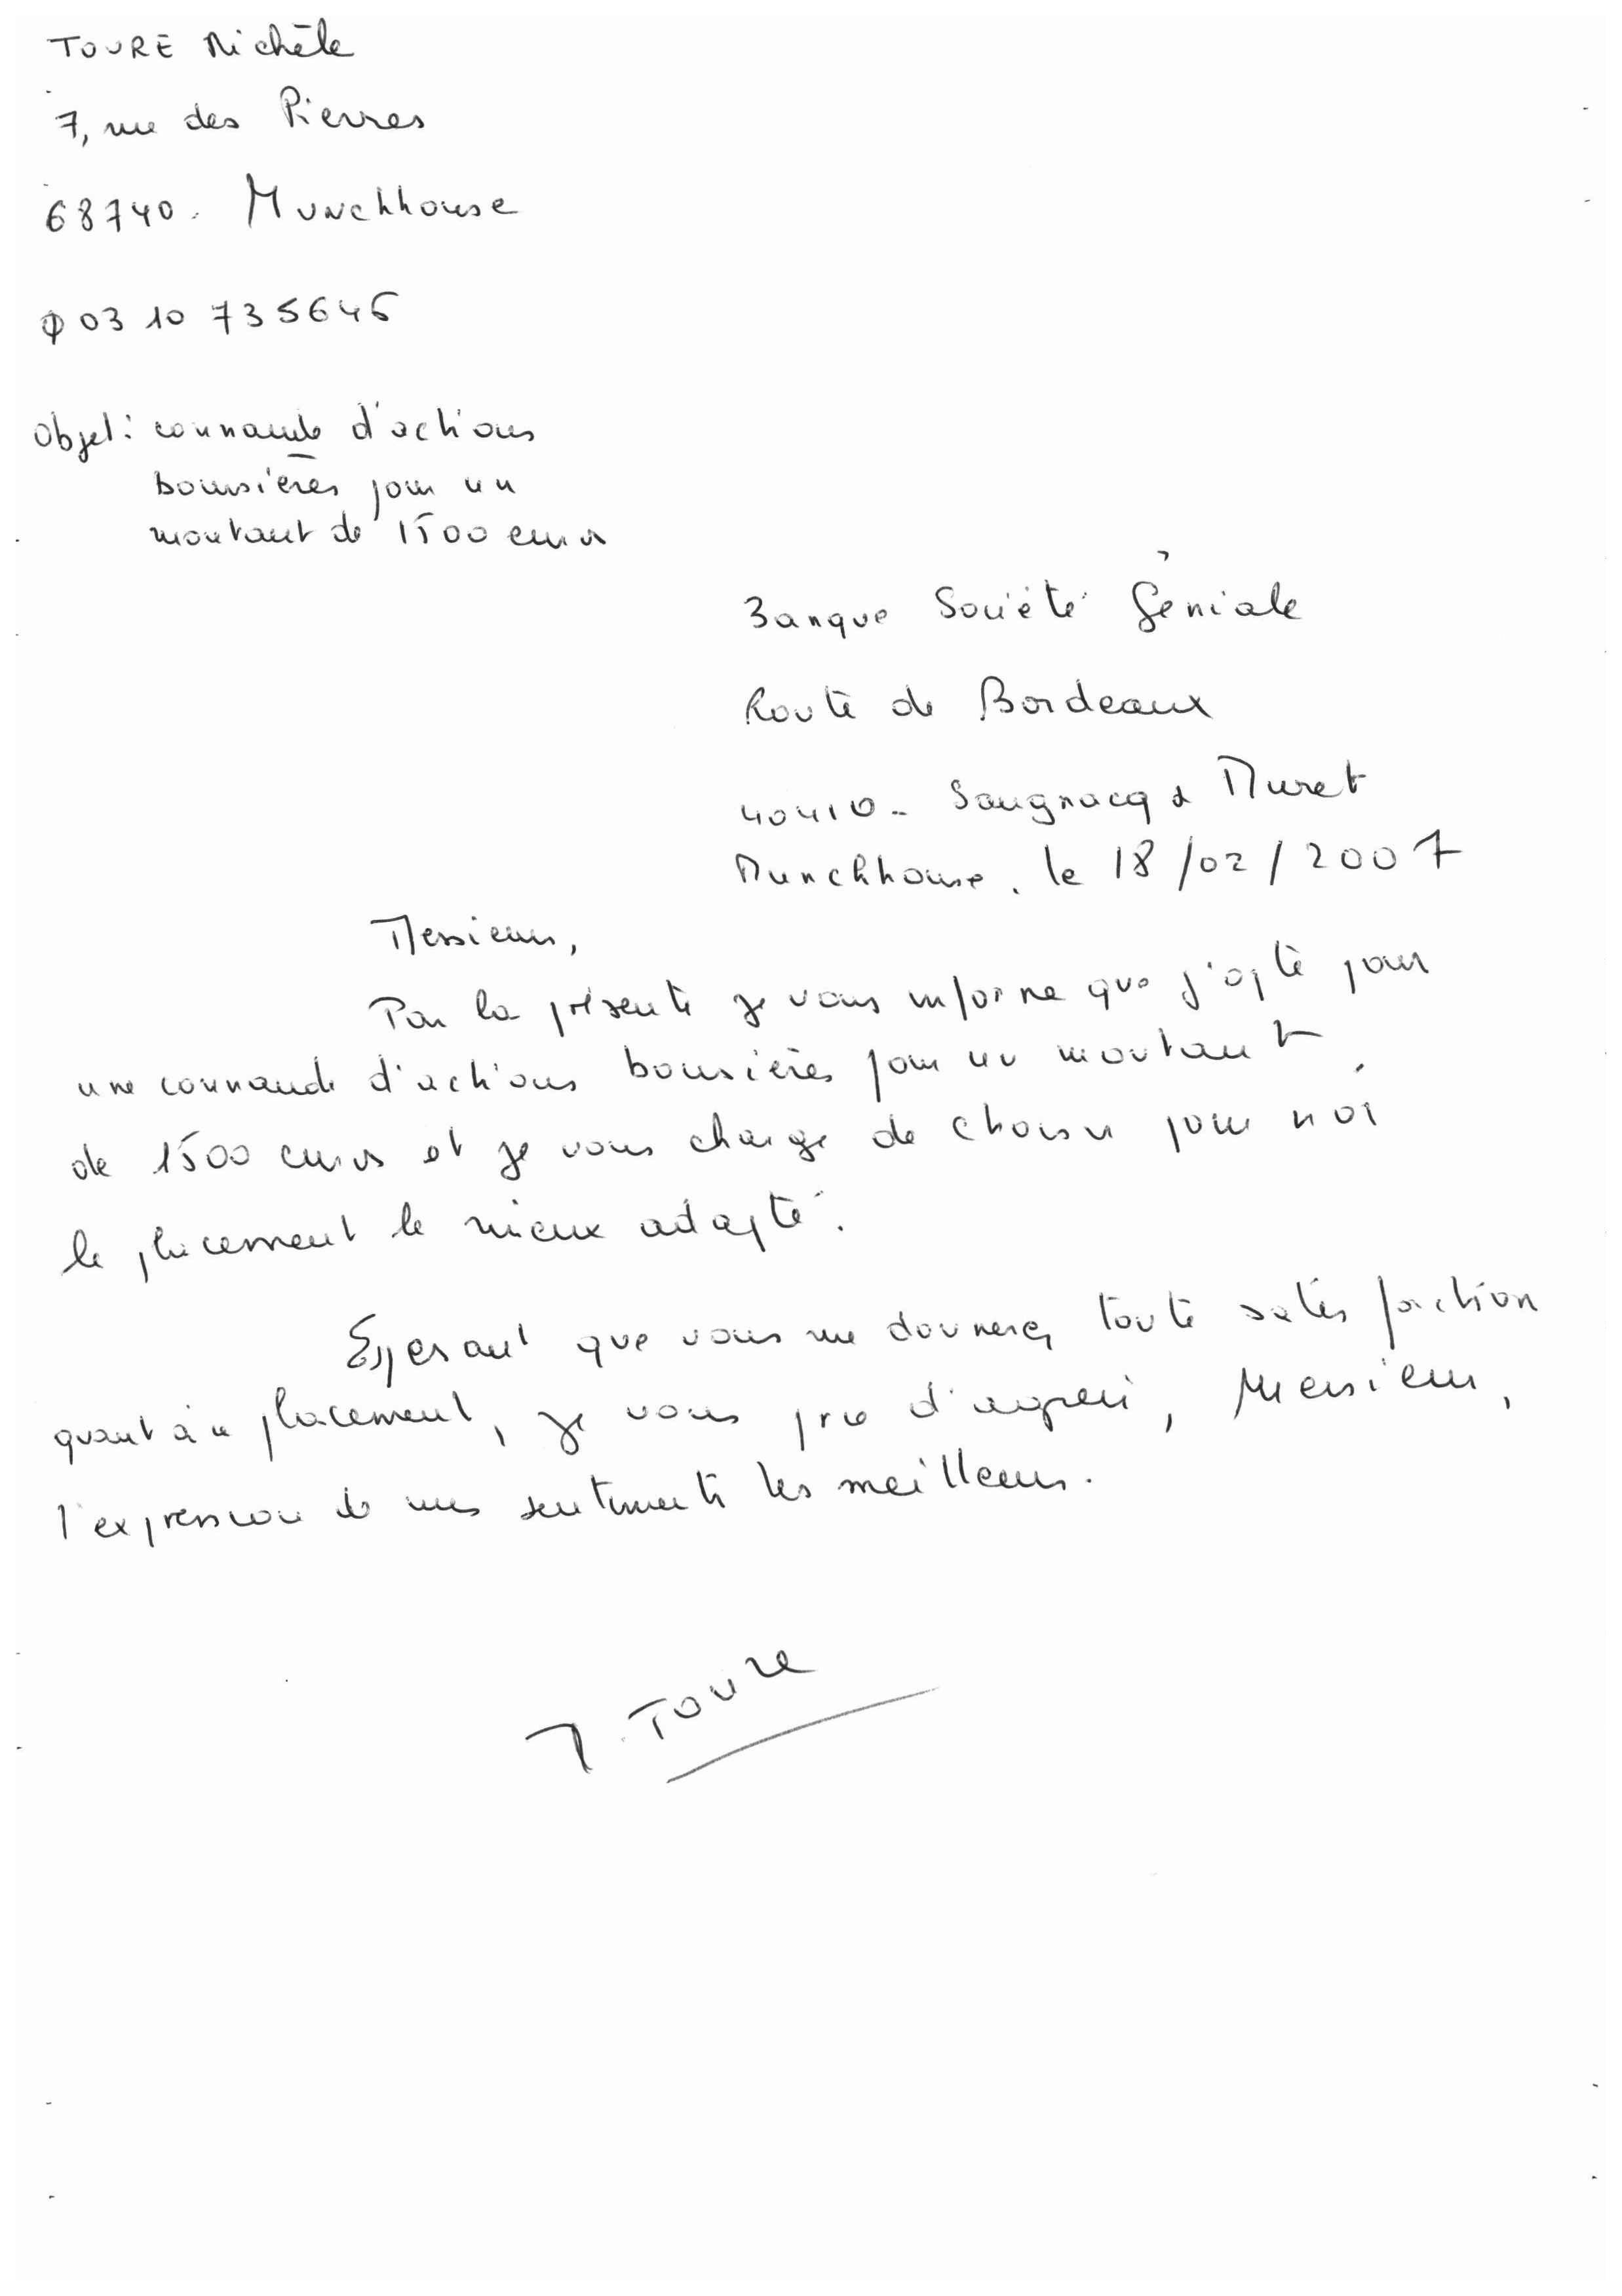 TOURE Michèle
7, rue des Pierres
68740. Munchhouse
Φ 03 10 735646
Objet : commande d'actions
boursières pour un
montant de 1500 euros
Banque Société Géniale
Route de Bordeaux
40410 - Saugnacq & Muret
Munchhouse, le 18/02/2007
Messieurs,
Par la présente je vous informe que j'opte pour
une commande d'actions boursières pour un montant
de 1500 euros et je vous charge de choisir pour moi
le placement le mieux adapté.
Espérant que vous me donnerez toute satisfaction
quant à ce placement, je vous prie d'agréer, Messieurs,
l'expression de mes sentiments les meilleurs.
M. Toure